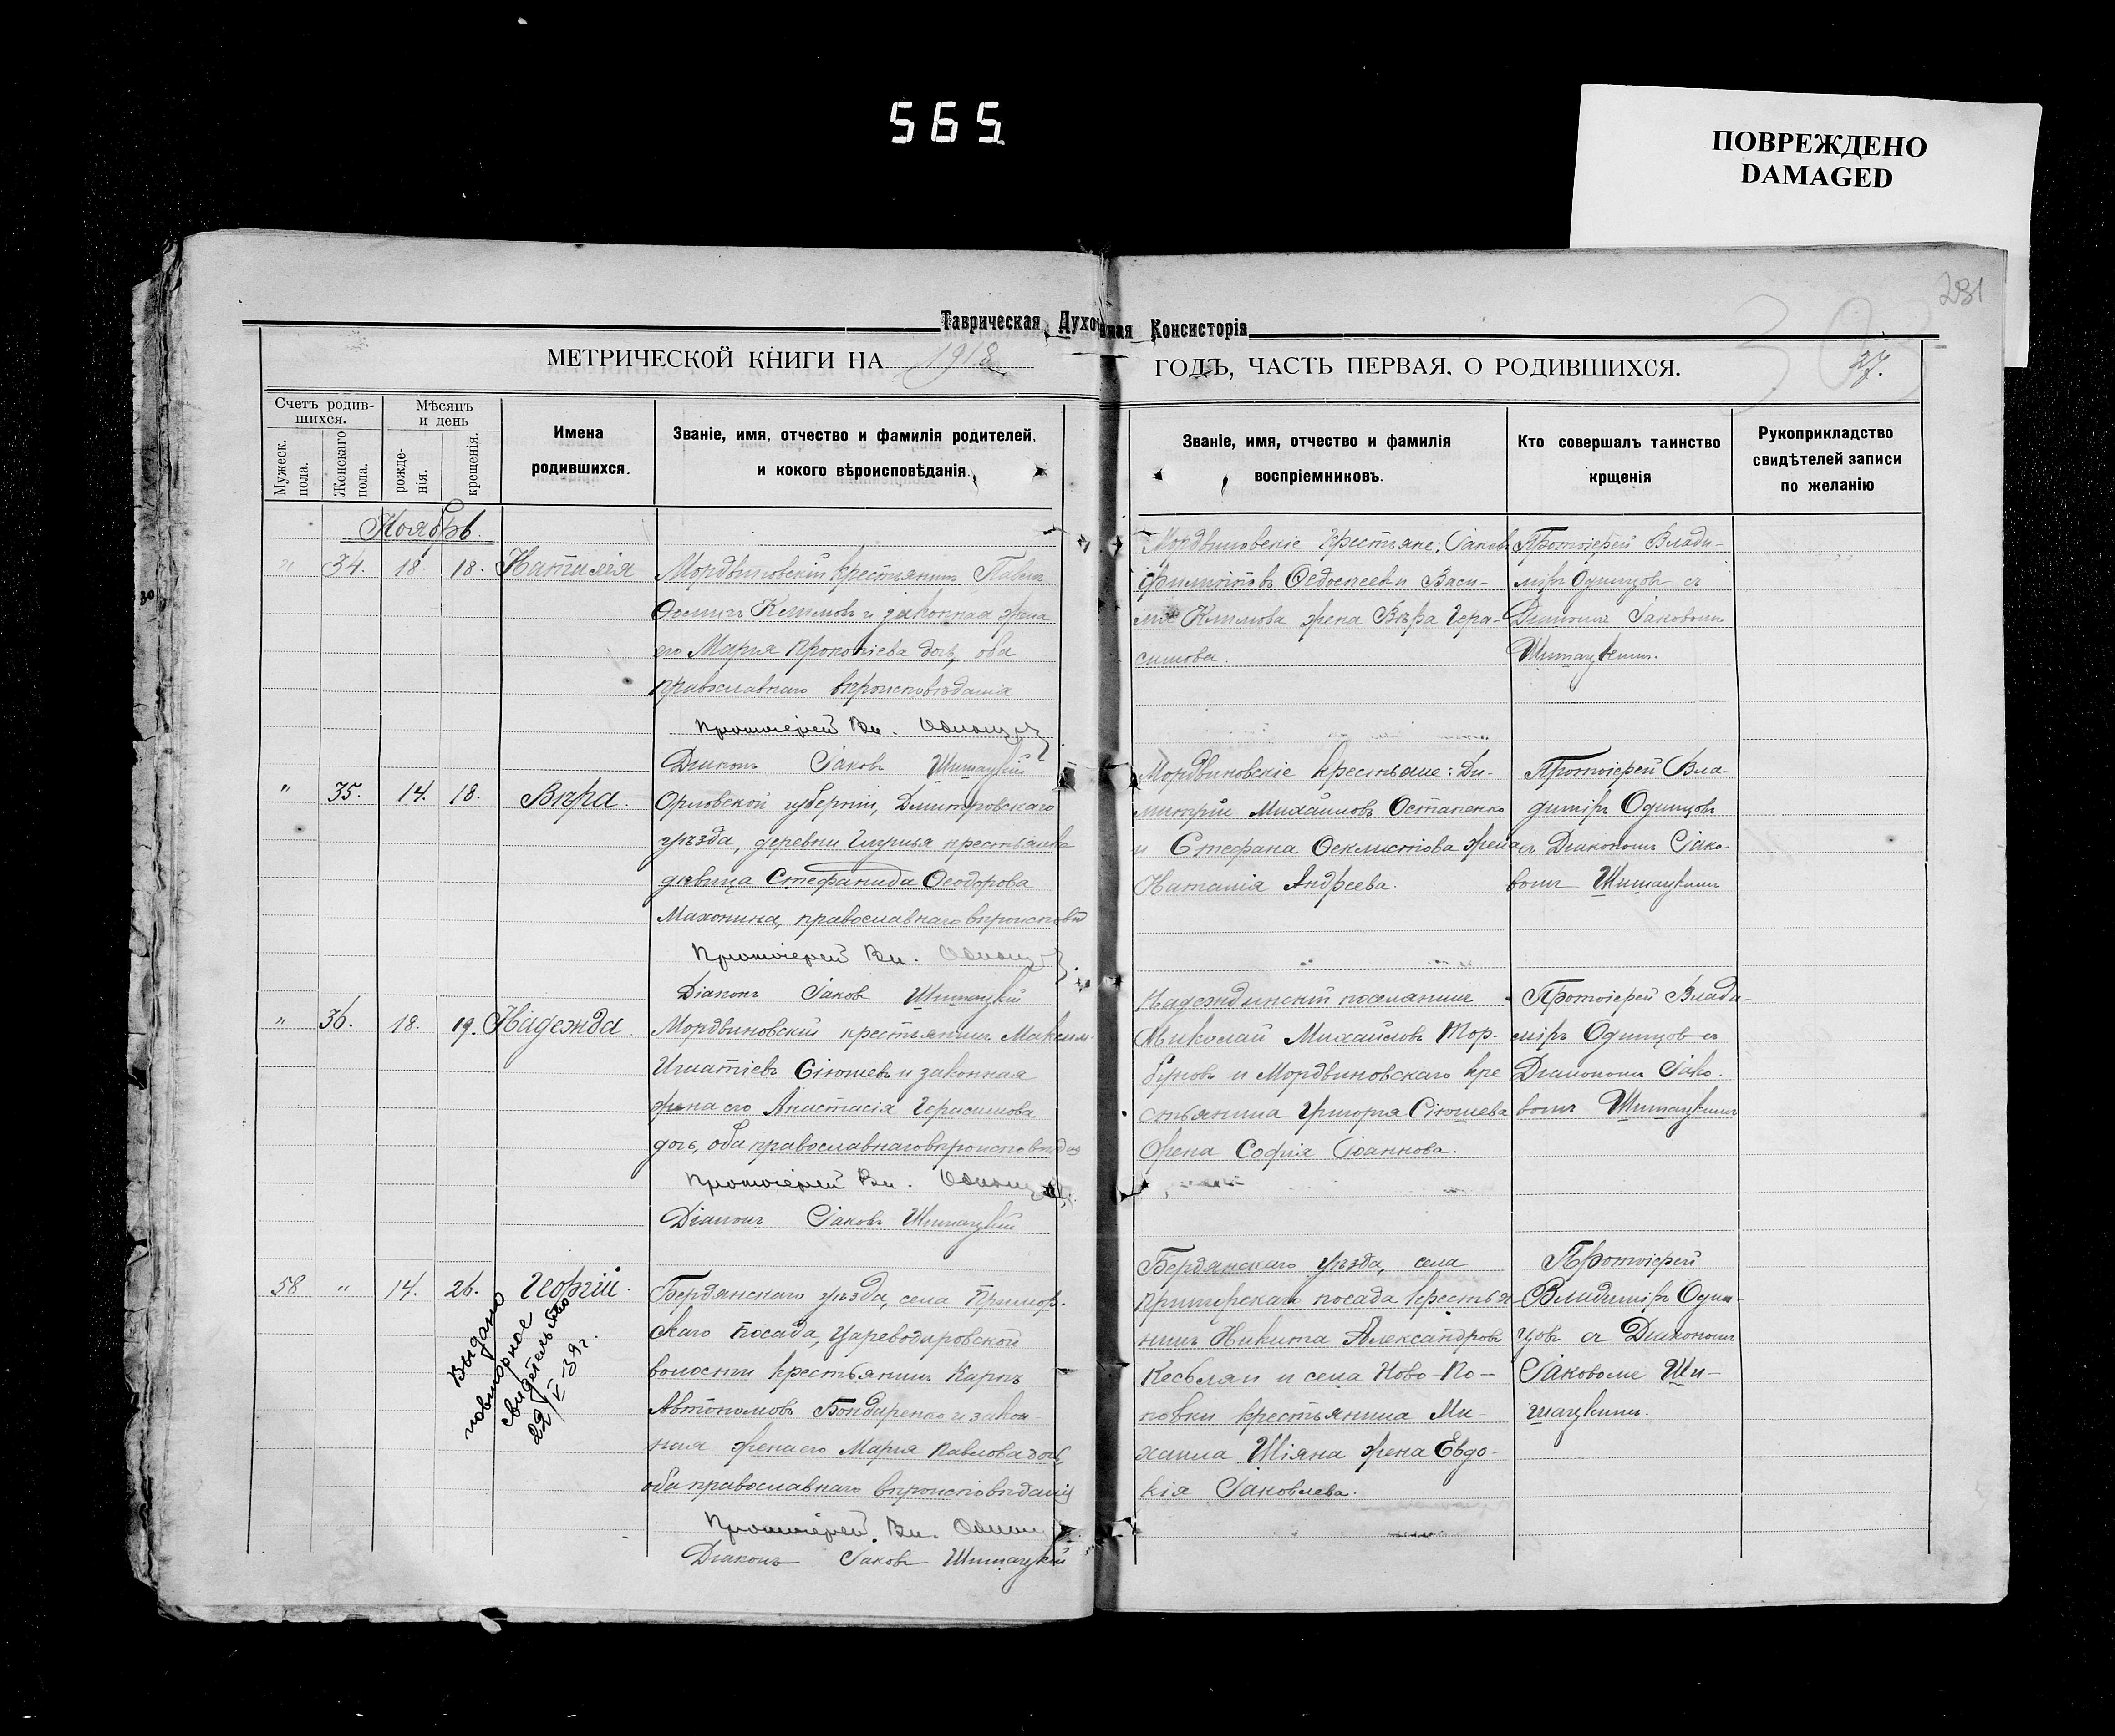 565
ПОВРЕЖДЕНО
DAMAGED
231
Таврическая Духовная Консисторія
МЕТРИЧЕСКОЙ КНИГИ НА 1918
ГОДЪ, ЧАСТЬ ПЕРВАЯ, О РОДИВШИХСЯ.
27.
Счетъ родив-
шихся.
Мужеск. пола.
Женскаго пола.
Мѣсяцъ
и день
рожде-
нія.
крещенія.
Имена
родившихся.
Званіе, имя, отчество и фамилія родителей,
и кокого вѣроисповѣданія.
Званіе, имя, отчество и фамилія
воспріемниковъ.
Кто совершалъ таинство
крщенія
Рукоприкладство
свидѣтелей записи
по желанію
Ноябрь
" 34. 18. 18. Наталія
Мордвиновскій крестьянинъ Павелъ
Климовъ и законная жена
его Мария Прокопіева дочь, оба
православнаго вѣроисповѣданія
Протоіерей Вл. Одинцов
Діаконъ Іаковъ Шишацкій
Мордвиновскіе крестьяне: Іаковъ
Филиппов Федосеев и Васи-
лія Климова жена Вѣра Гера-
симова.
Протоіерей Влади-
міръ Одинцовъ съ
Діакономъ Іаковомъ
Шишацкимъ.
" 35. 14. 18. Вѣра.
Орловской губерніи, Дмитровскаго
уѣзда, деревни крестьянка
дѣвица Стефанида Ѳеодорова
Махонина, православнаго вѣроисповѣд
Протоіерей Вл. Одинцов
Діаконъ Іаков Шишацкій
Мордвиновскіе крестьяне: Ди-
митрій Михаиловъ Остапенко
и Стефана Феклистова жена
Наталія Андреева.
Протоіерей Вла-
диміръ Одинцовъ
съ Діакономъ Іако-
вомъ Шишацкимъ
" 36. 18. 19. Надежда
Мордвиновскій крестьянинъ Максимъ
Игнатіевъ Сіюшевъ и законная
жена его Анастасія Герасимова
дочь, оба православнаго вѣроисповѣдан
Протоіерей Вл. Одинцов
Діаконъ Іаковъ Шишацкій
Надеждинскій поселянинъ
Николай Михайловъ Тор-
буновъ и Мордвиновскаго кре
стьянина Григория Сіюшева
жена Софія Іоаннова.
Протоіерей Влади-
міръ Одинцовъ съ
Діакономъ Іако-
вомъ Шишацкимъ
58 " 14. 26. Георгій.
Выдано
повторное
свидетельство
22/V 39 г.
Бердянскаго уѣзда, села Примор-
скаго посада, Цареводаровской
волости крестьянинъ Карпъ
Автономовъ Бондаренко и закон-
ная жена его Мария Павлова дочь,
оба православнаго вѣроисповѣданія
Протоіерей Вл. Одинцов
Діаконъ Іаковъ Шишацкій
Бердянскаго уѣзда, села
Приморскаго посада крестья
нинъ Никита Александровъ
и села Ново-По-
повки крестьянина Ми-
хаила Шіяна жена Евдо-
кія Іаковлева.
Протоіерей
Владиміръ Один-
цовъ съ Діакономъ
Іаковомъ Ши-
шацкимъ.